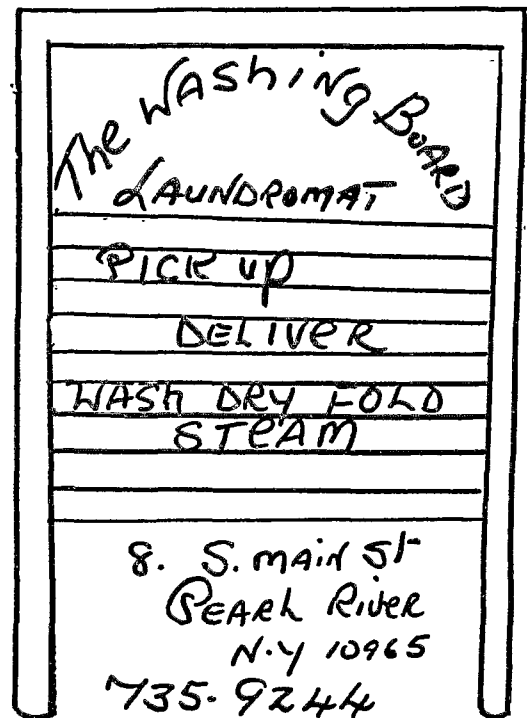 The WAShiNg BOARD
LAUNDROMAT
PICK up
DELIVeR
WASh DRY FOLD
STeAM
8. S. MAiN St
PEARL RiveR
N.Y 10965
735-9244